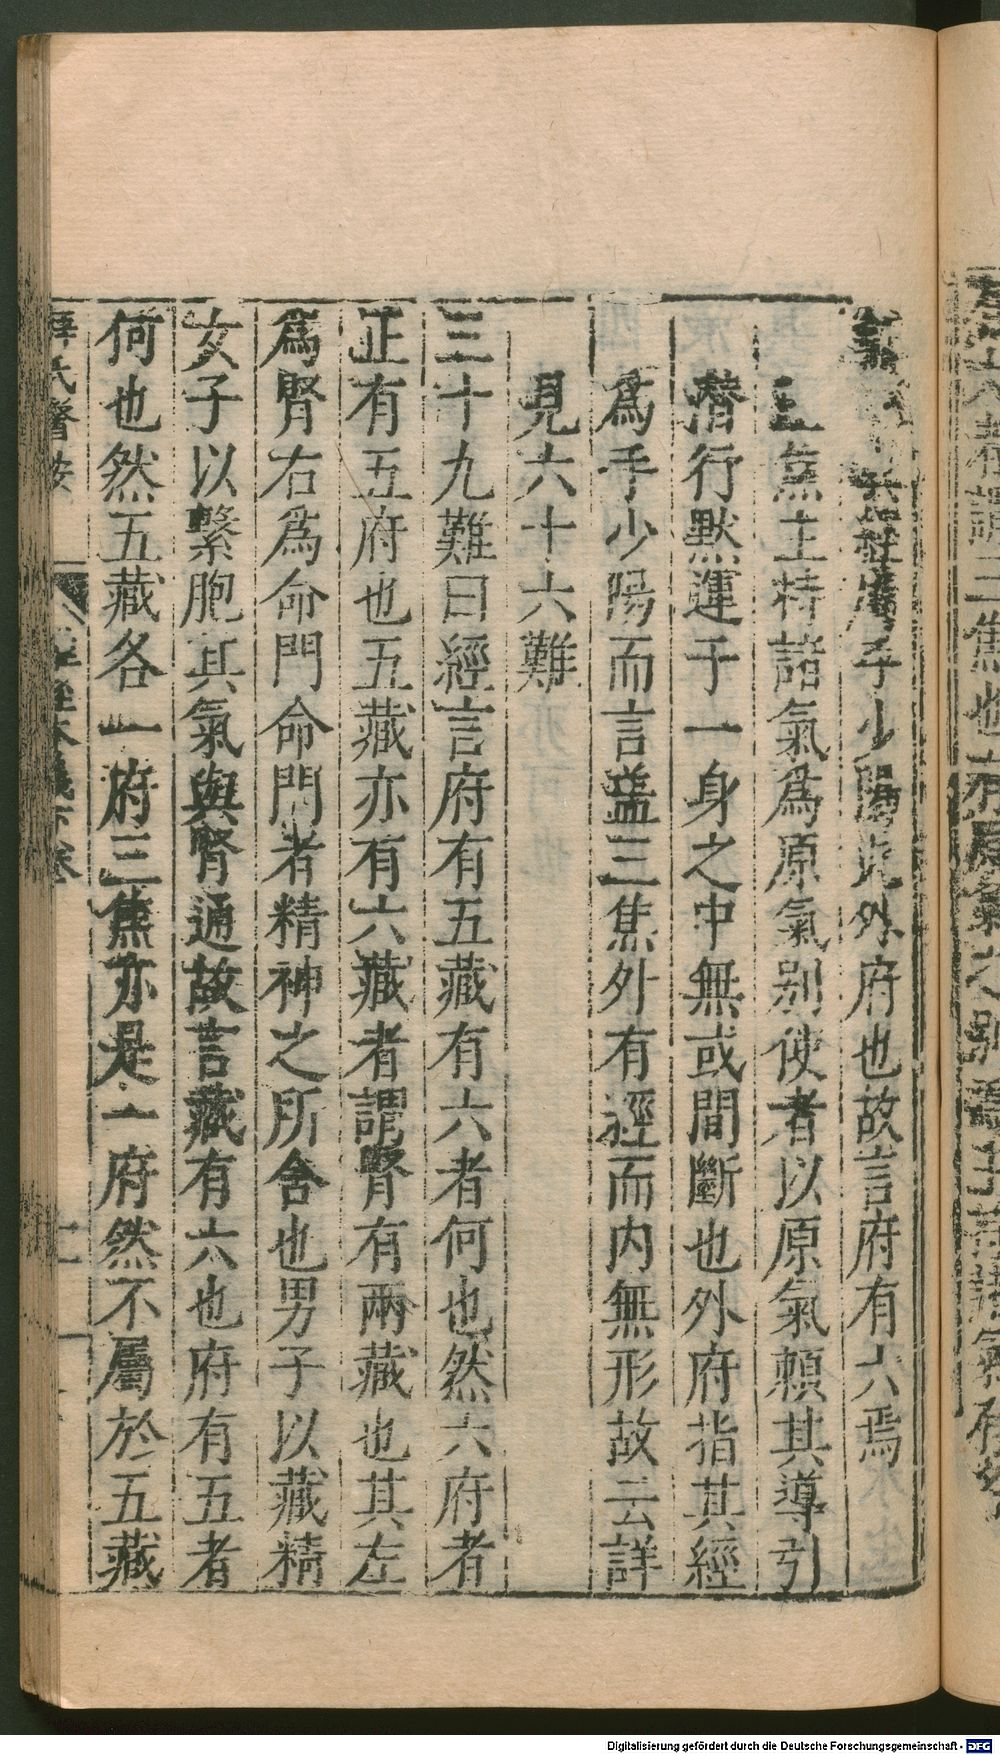 其經屬手少陽此外府也故言府有六焉
三焦主持諸氣爲原氣别使者以原氣賴其導引
濳行默運于一身之中無或間斷也外府指其經
爲手少陽而言盖三焦外有經而内無形故云詳
見六十六難
三十九難曰經言府有五藏有六者何也然六府者
正有五府也五藏亦有六藏者謂腎有兩藏也其左
爲腎右爲命門命門者精神之所舍也男子以藏精
女子以繫胞其氣與腎通故言藏有六也府有五者
何也然五藏各一府三焦亦是一府然不屬於五藏
薛氏醫按
本義下卷
Digitalisierung gefördert durch die Deutsche Forschungsgemeinschaft - DFG